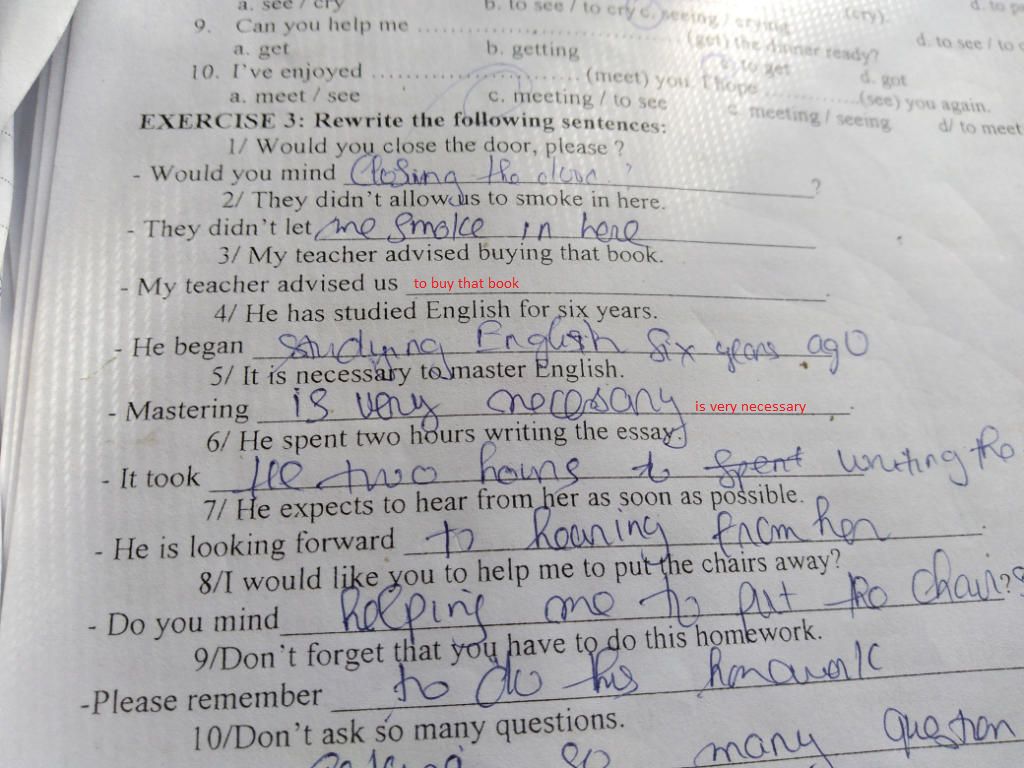 a. see / cry b. to see / to cry c. seeing / crying d. to
9. Can you help me .................... (get) the dinner ready? (cry).
a. get b. getting c. to get d. got d. to see / to c
10. I've enjoyed .................... (meet) you. I hope ............(see) you again.
a. meet / see c. meeting / to see c meeting / seeing d/ to meet
EXERCISE 3: Rewrite the following sentences:
1/ Would you close the door, please ?
- Would you mind Closing the door ?
2/ They didn't allow us to smoke in here.
- They didn't let me smoke in here
3/ My teacher advised buying that book.
- My teacher advised us to buy that book .
4/ He has studied English for six years.
- He began studying English six years ago
5/ It is necessary to master English.
- Mastering is very necessary is very necessary .
6/ He spent two hours writing the essay.
- It took He two hours to spent writing the
7/ He expects to hear from her as soon as possible.
- He is looking forward to hearing from her .
8/I would like you to help me to put the chairs away?
- Do you mind helping me to put the chair ?
9/Don't forget that you have to do this homework.
-Please remember to do this homework
10/Don't ask so many questions.
so many question